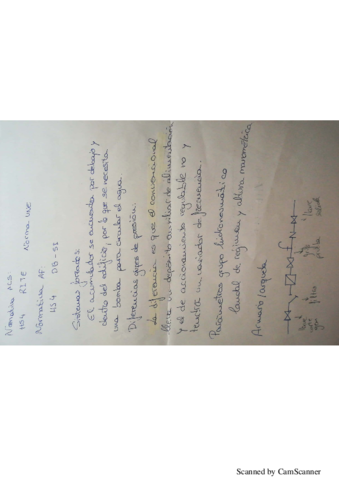 Normativa ACS
HS4 RITE Norma UNE
Normativa AF
HS4 DB-SI
Sistemas forzados
El acumulador se encuentra por debajo y
dentro del edificio, por lo que se necesita
una bomba para circular el agua.
Diferencias grupos de presión.
La diferencia es que el convencional
lleva un depósito auxiliar de alimentación
y el de accionamiento regulable no y
tendrá un variador de frecuencia.
Parámetros grupo hidroneumático
Caudal de régimen y altura manométrica
Armario/arqueta
Llave
filtro
Llave
Scanned by CamScanner